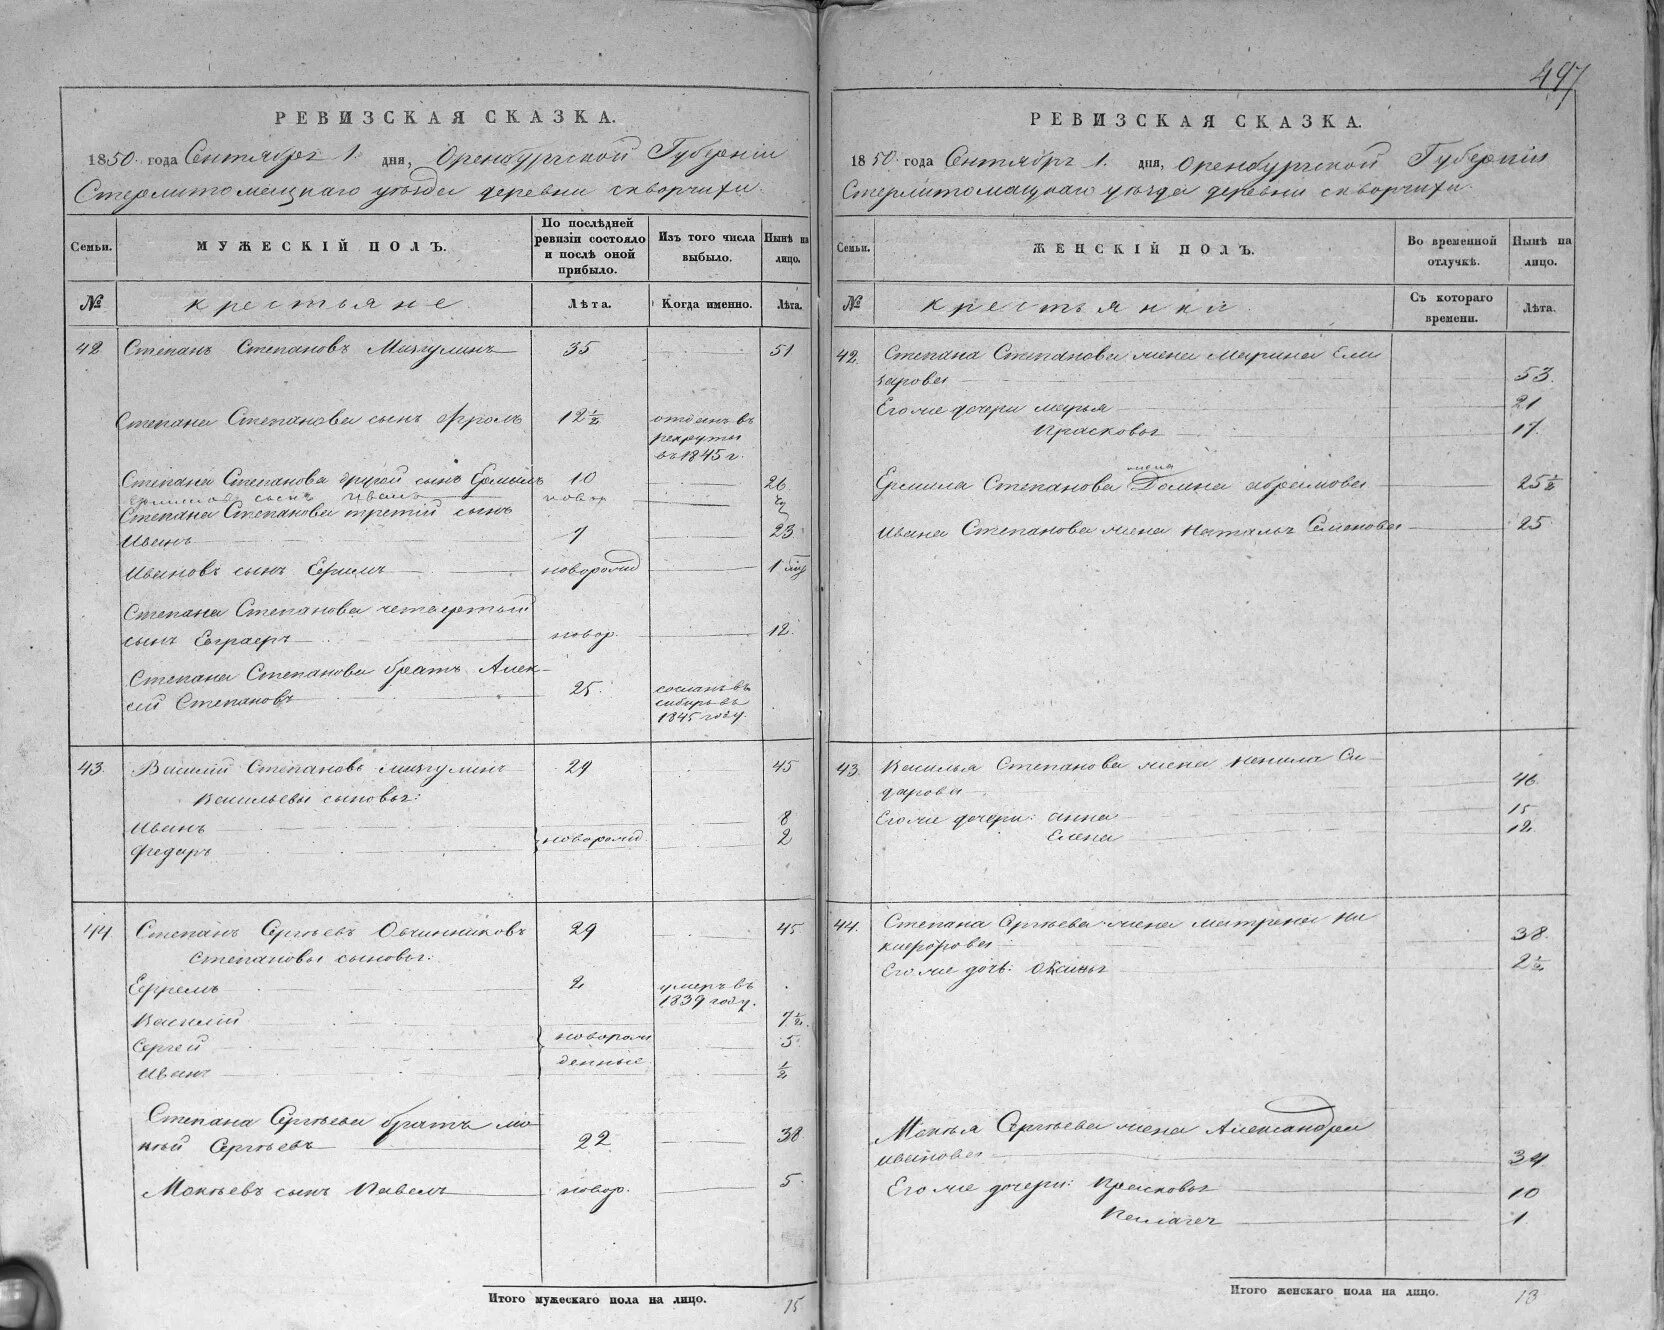 497
РЕВИЗСКАЯ СКАЗКА.
1850 года Сентября 1. дня, Оренбургской Губерніи
Стерлитомацкаго уѣзда деревни скворчихи.
Семьи. МУЖЕСКІЙ ПОЛЪ. По послѣдней ревизіи состояло и послѣ оной прибыло. Изъ того числа выбыло. Нынѣ на лицо.
№ крестьяне Лѣта. Когда именно. Лѣта.
42 Степанъ Степановъ Мизгулинъ 35 51
Степана Степанова сынъ Фролъ 12½ отданъ въ
рекруты
въ 1845 г.
Степана Степанова другой сынъ Ермилъ 10 26
Ермиловъ сынъ Иванъ новор
Степана Степанова третій сынъ
Иванъ 7 23
Ивановъ сынъ Ефимъ новорожд 1
Степана Степанова четвертый
сынъ Евграфъ новор. 12.
Степана Степанова братъ Алек-
сѣй Степановъ 25. сосланъ въ
сибирь въ
1845 году.
43. Василій Степановъ мизгулинъ 29 45
Васильевы сыновья:
Иванъ 8
Федаръ новорожд 2
44 Степанъ Сергѣевъ Овчинниковъ 29 45
Степановы сыновья:
Ефремъ 2 умеръ въ
1839 году.
Василій 7½
Сергей новорож 5
Иванъ денные ½
Степана Сергѣева братъ Мо-
кѣй Сергѣевъ 22 38
Мокѣевъ сынъ Павелъ новор. 5.
Итого мужескаго пола на лицо. 15
РЕВИЗСКАЯ СКАЗКА.
1850 года Сентября 1. дня, Оренбургской Губерніи
Стерлитомацкаго уѣзда деревни скворчихи.
Семьи. ЖЕНСКІЙ ПОЛЪ. Во временной отлучкѣ. Нынѣ на лицо.
№ крестьянки Съ котораго времени. Лѣта.
42. Степана Степанова жена Марина Ели
зарова 53.
Его же дочери марья 21
Прасковья 17.
жена
Ермила Степанова Домна абрамова 25½
Ивана Степанова жена Наталья Семенова 25
43. Василья Степанова жена ненила Си-
дарова 46.
Его же дочери: анна 15
Елена 12.
44. Степана Сергѣева жена матрена ни
кифорова 38.
Его же дочь: Оксинья 2½
Мокѣя Сергѣева жена Александра
ивановна 34
Его же дочери: Прасковья 10
Пелагея 1.
Итого женскаго пола на лицо. 13